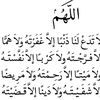 اللَّهُمَّ
لَا تَدَعْ لَنَا ذَنْبًا إِلَّا غَفَرْتَهُ وَلَا هَمًّا
إِلَّا فَرَّجْتَهُ وَلَا كَرْبًا إِلَّا نَفَّسْتَهُ
وَلَا مَيِّتًا إِلَّا رَحِمْتَهُ وَلَا مَرِيضًا
إِلَّا شَفَيْتَهُ وَلَا دَيْنًا إِلَّا قَضَيْتَهُ